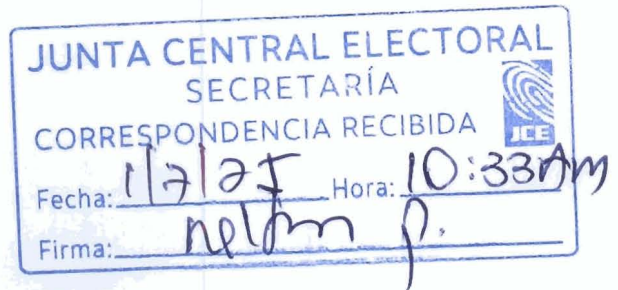 JUNTA CENTRAL ELECTORAL
SECRETARÍA
CORRESPONDENCIA RECIBIDA
JCE
Fecha: 1/7/25 Hora: 10:33 AM
Firma: nelson p.